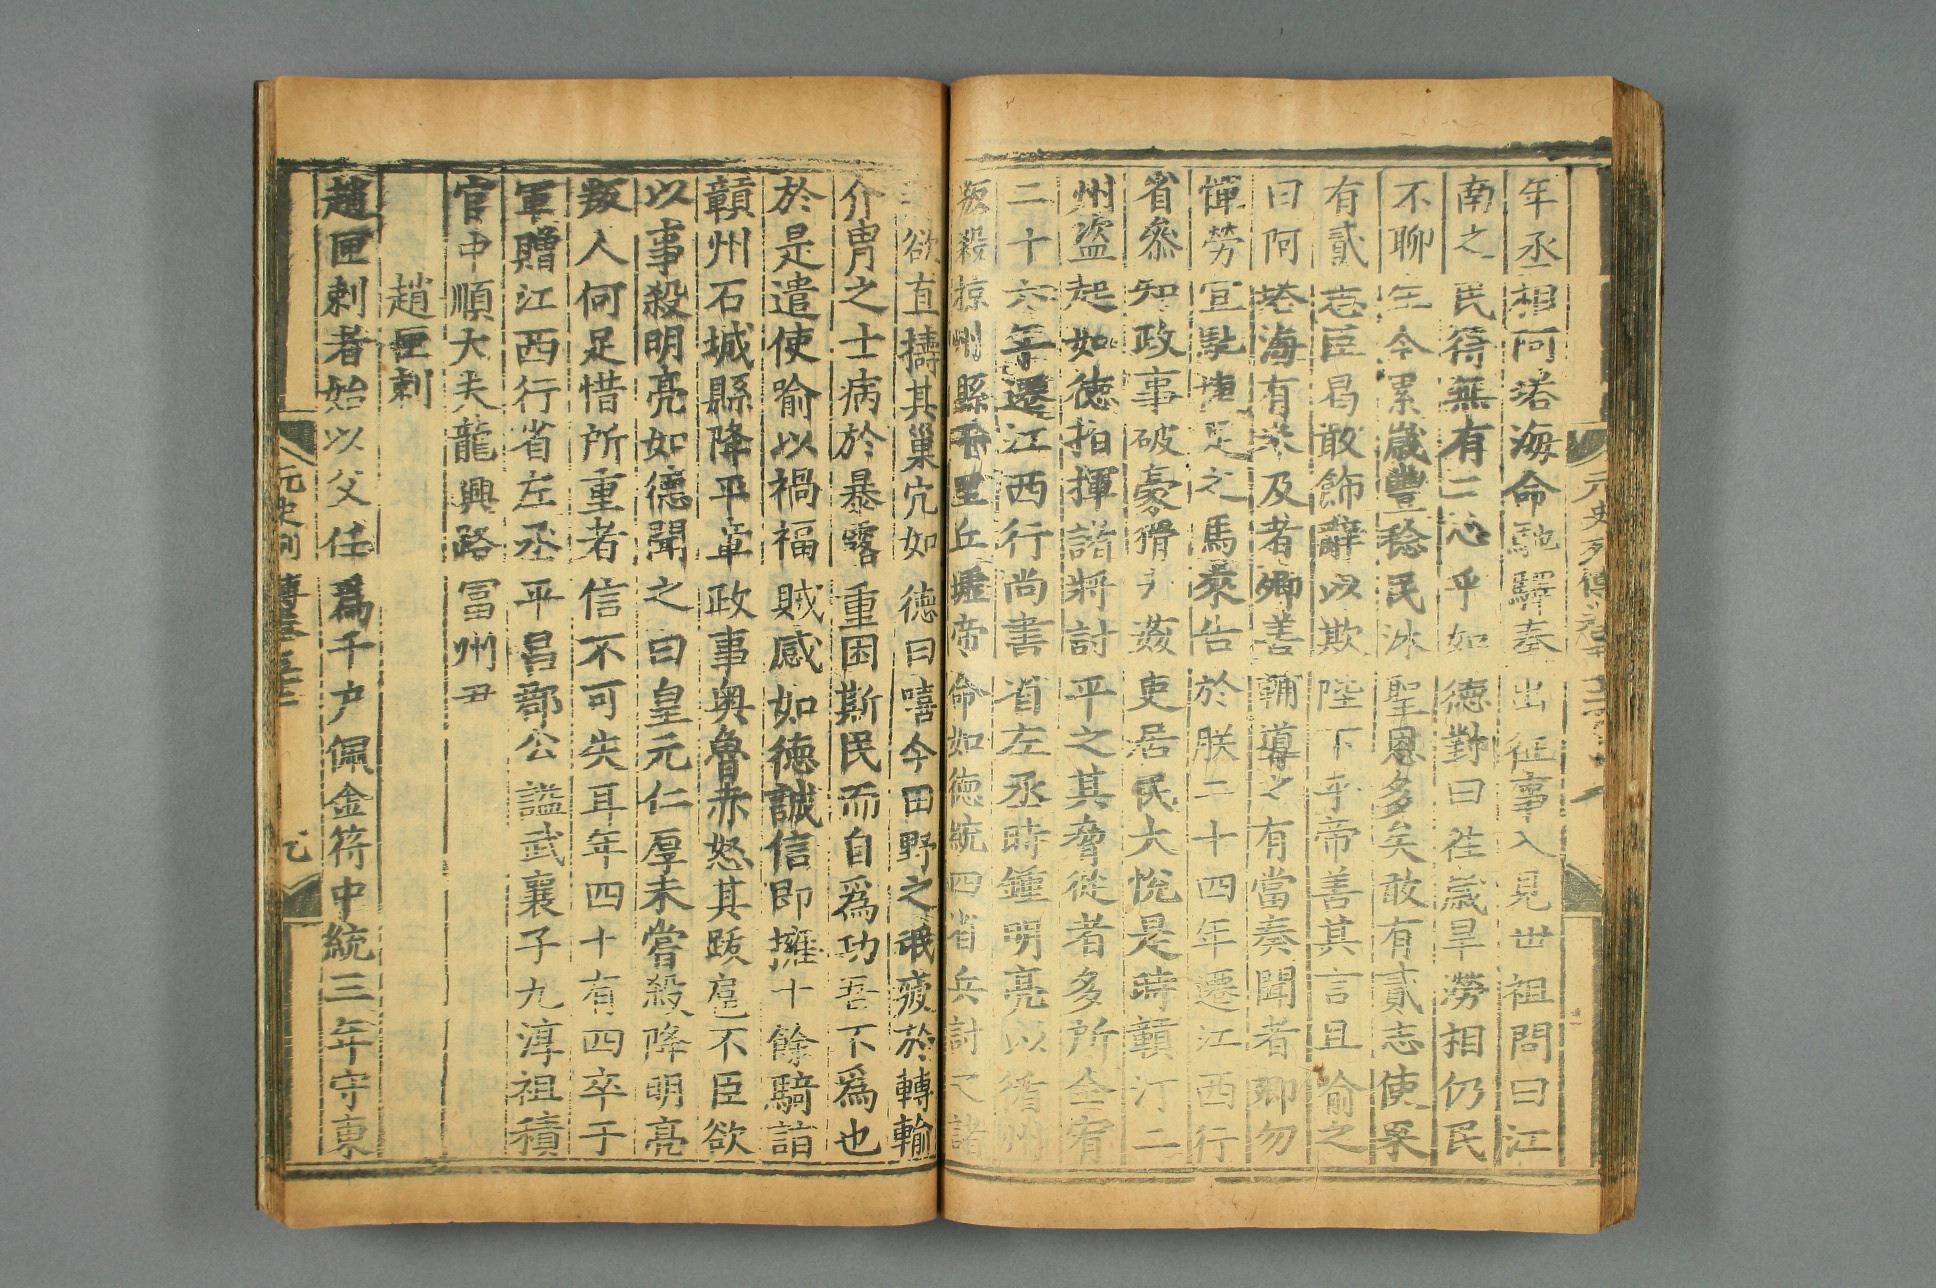 年丞相阿塔海命馳驛奉出征事入見世祖問曰江
南之民得無有二心乎如德對曰往歲旱澇相仍民
不聊生今累歲豐稔民沐聖恩多矣敢有貳志使果
有貳志臣曷敢飾辭以欺陛下乎帝善其言且諭之
曰阿塔海有未及者卿善輔導之有當奏聞者卿勿
憚勞宜馳捷足之馬來告於朕二十四年遷江西行
省叅知政事破豪猾去姦吏居民大悅是時贛汀二
州盗起如德指揮諸將討平之其脅從者多所全宥
二十六年遷江西行尚書省左丞時鍾明亮以循州
叛殺掠州縣千里丘墟帝命如德統四省兵討之諸
欲直擣其巢宂如德曰嘻今田野之氓疲於轉輸
介胄之士病於暴露重困斯民而自爲功吾不爲也
於是遣使喻以禍福賊感如德誠信即擁十餘騎詣
贑州石城縣降平章政事奥魯赤怒其跋扈不臣欲
以事殺明亮如德聞之曰皇元仁厚未嘗殺降明亮
叛人何足惜所重者信不可失耳年四十有四卒于
軍贈江西行省左丞平昌郡公謚武襄子九淳祖積
官中順大夫龍興路冨州尹
趙匣剌
趙匣剌者始以父任爲千户佩金符中統三年守東
元史列傳卷五十二
九